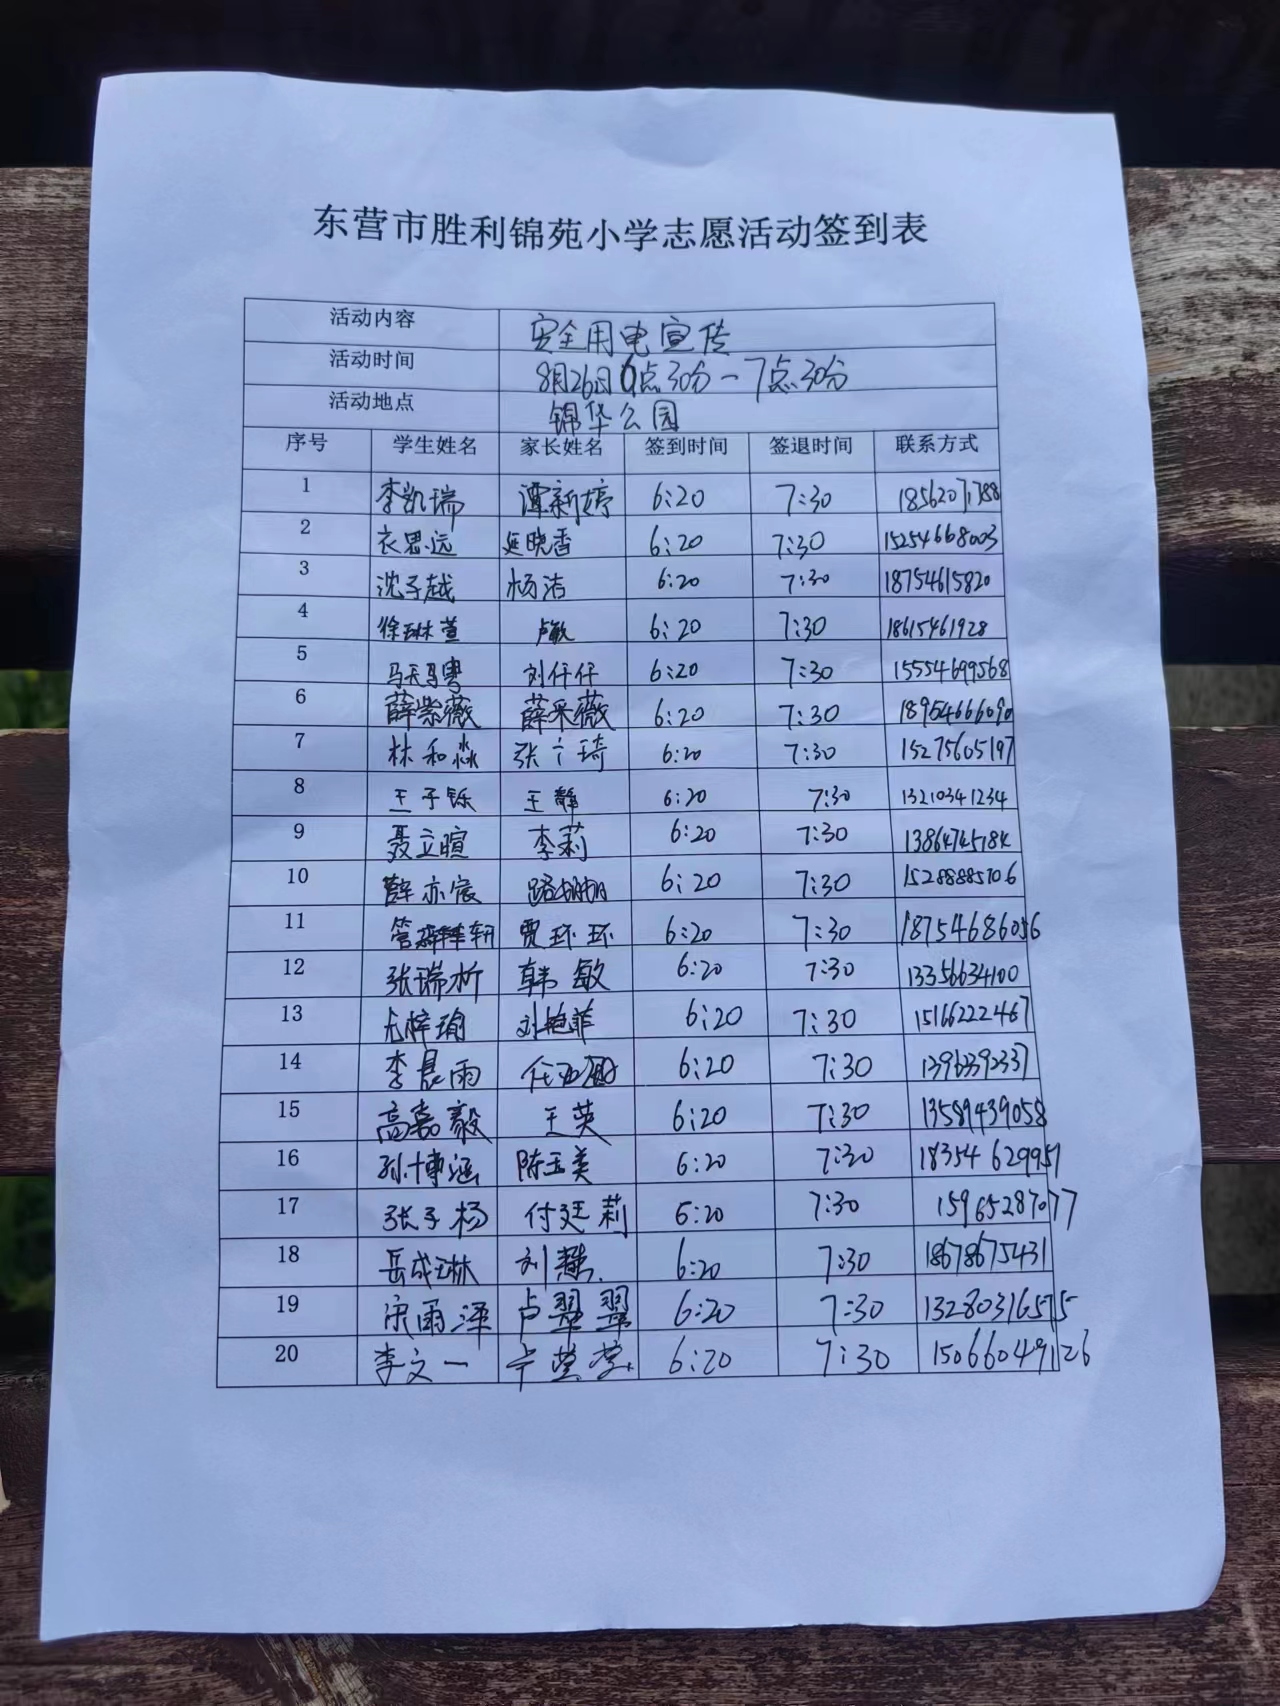 东营市胜利锦苑小学志愿活动签到表
活动内容 安全用电宣传
活动时间 8月26日6点30分－7点30分
活动地点 锦华公园
序号 学生姓名 家长姓名 签到时间 签退时间 联系方式
1 李凯瑞 谭新婷 6:20 7:30 18562071788
2 衣思远 延晓香 6:20 7:30 15254668003
3 沈子越 杨洁 6:20 7:30 18754615820
4 徐琳萱 卢敏 6:20 7:30 18615461928
5 刘仟仟 6:20 7:30 15554699568
6 薛紫薇 薛采薇 6:20 7:30 18954666090
7 林和淼 张广琦 6:20 7:30 15275605197
8 王子铄 王静 6:20 7:30 13210341234
9 聂立暄 李莉 6:20 7:30 13864745184
10 薛亦宸 6:20 7:30 15288885706
11 贾环环 6:20 7:30 18754686056
12 张瑞析 韩敏 6:20 7:30 13356634100
13 尤梓瑜 刘艳菲 6:20 7:30 15166222467
14 李晨雨 6:20 7:30 13963392337
15 高嘉毅 王英 6:20 7:30 13589439058
16 孙博涵 陈玉美 6:20 7:30 18354629957
17 张子杨 付廷莉 6:20 7:30 15965287077
18 岳成琳 刘慧 6:20 7:30 18678675431
19 宋雨泽 卢翠翠 6:20 7:30 13280316575
20 李文一 6:20 7:30 15066049126